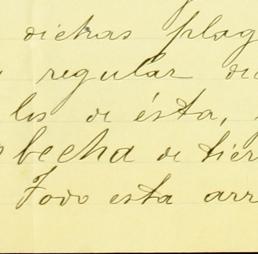 dichas plag
regular de
los de ésta,
becha de tier
Todo esta arr